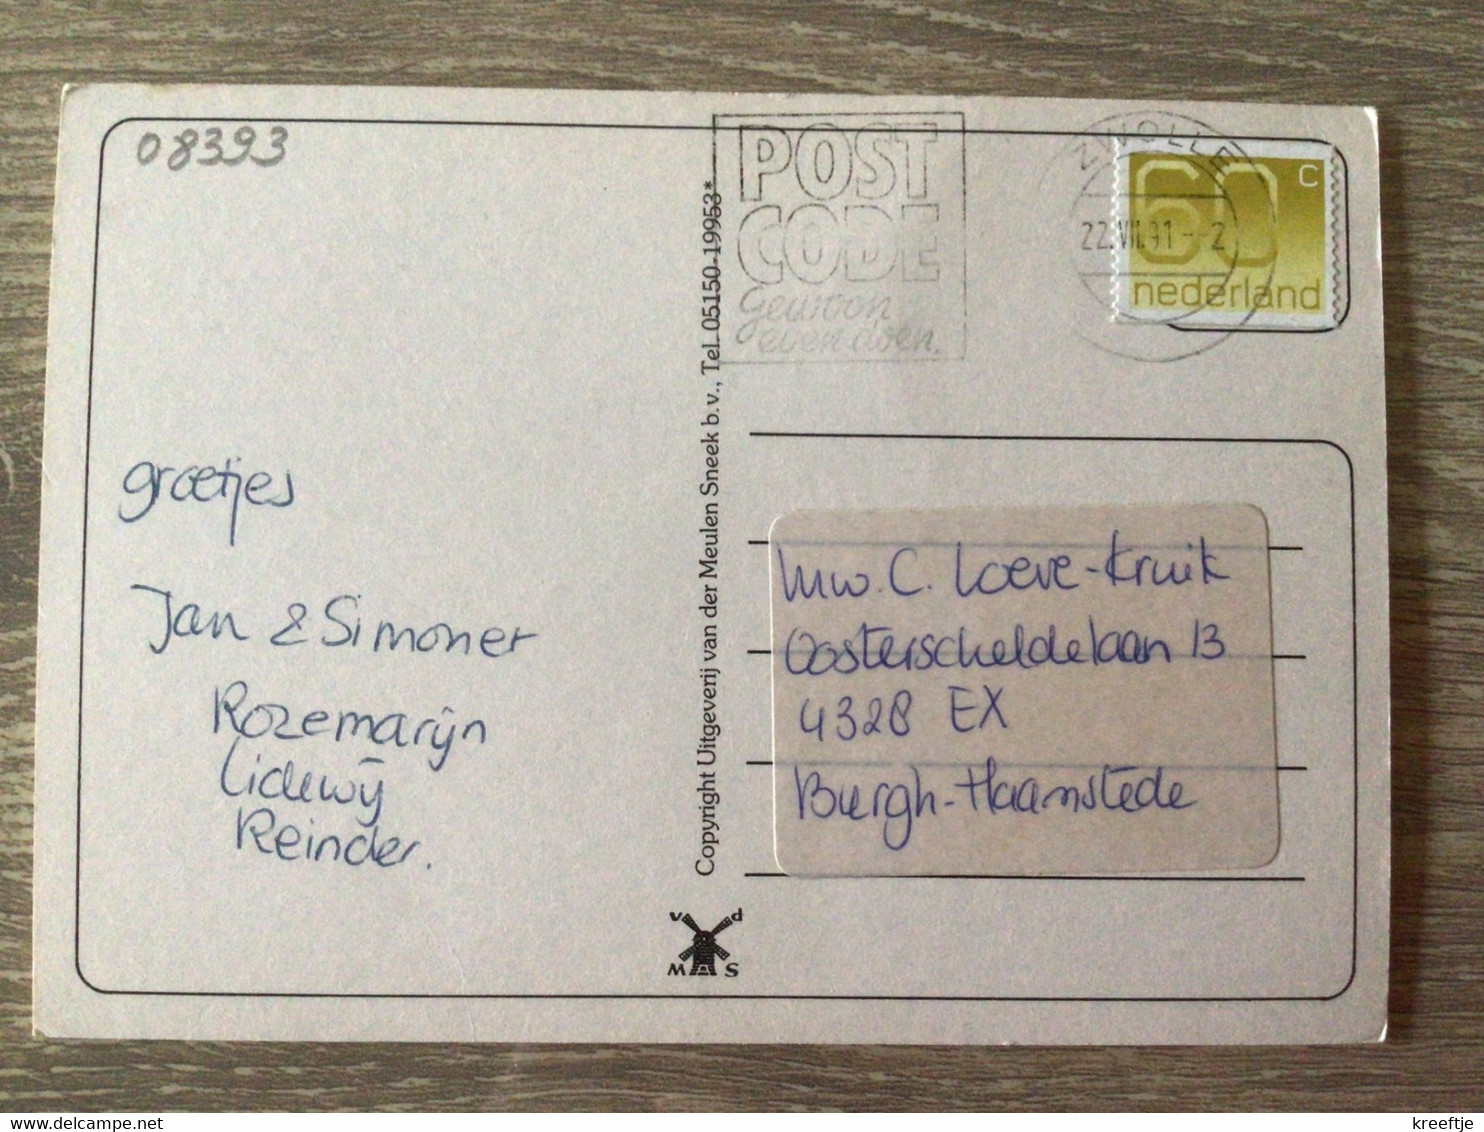 08393
POST
CODE
gewoon
even doen.
ZWOLLE
22.VII.91--2
60 C
nederland
groetjes
Jan & Simoner
Rozemarijn
Lidewij
Reinder.
Copyright Uitgeverij van der Meulen Sneek b.v., Tel. 05150-19953*
Mw. C. Loeve-Kruik
Oosterscheldelaan 13
4328 EX
Burgh-Haamstede
v d
M S
kreeftje